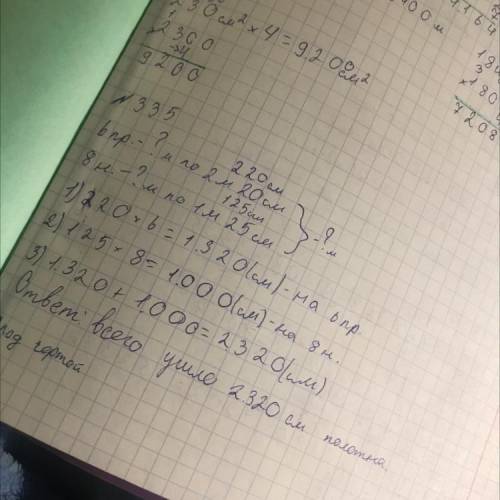 230 см² × 4 = 9200 см²
2300
4
9200
100 м
1164
184
180
7208
№335
6 пр. - ? м по 2м 20см
220см
8 н. - ? м по 1м 25см
125см
- ? м
1) 220 × 6 = 1.320(см) - на 6 пр.
2) 125 × 8 = 1.000(см) - на 8 н.
3) 1.320 + 1.000 = 2320(см)
Ответ: всего ушло 2.320 см полотна.
под чертой